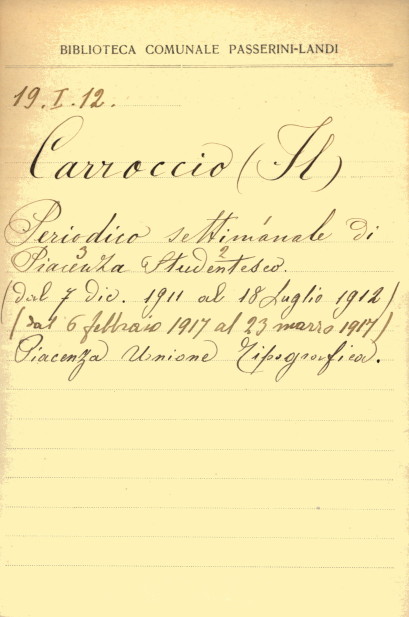 BIBLIOTECA COMUNALE PASSERINI-LANDI
19.I.12.
Carroccio (Il)
Periodico settimanale di
3 2
Piacenza Studentesco.
(dal 7 dic. 1911 al 18 Luglio 1912)
(dal 6 febbraio 1917 al 23 marzo 1917)
Piacenza Unione Tipografica.